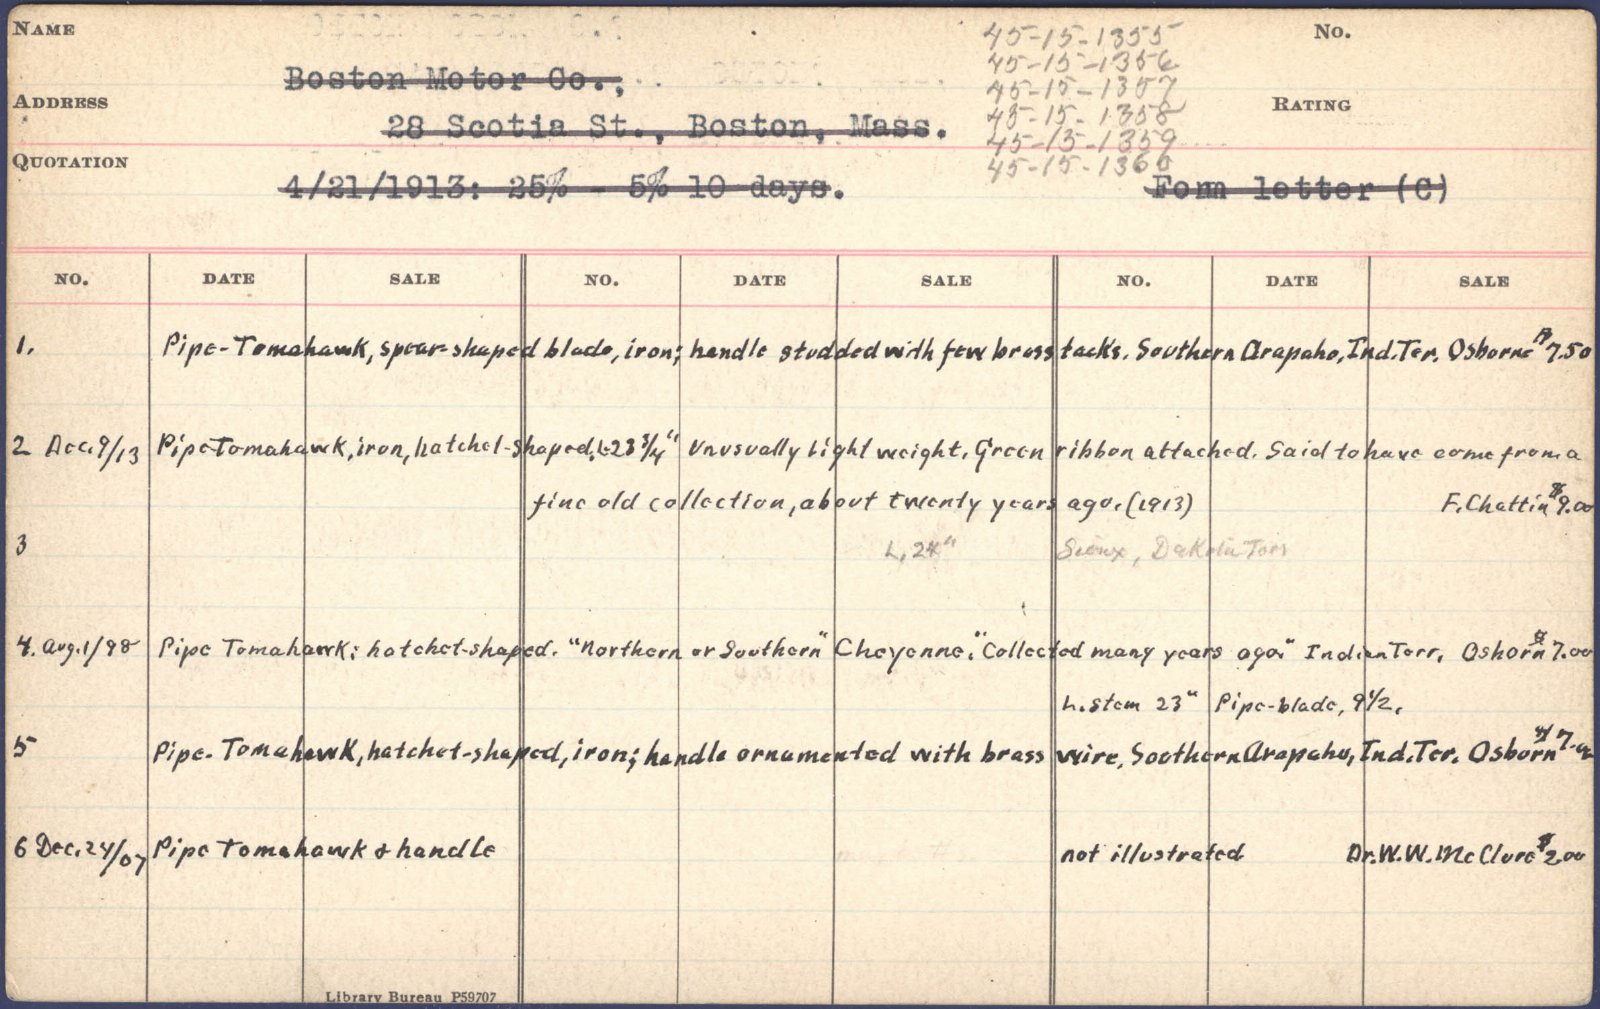 NAME
45-15-1355
No.
45-15-1356
Boston Motor Co.,
45-15-1357
ADDRESS
45-15-1358
RATING
28 Scotia St., Boston, Mass.
45-15-1359
QUOTATION
45-15-1360
4/21/1913: 25% - 5% 10 days.
Form letter (C)
NO. DATE SALE NO. DATE SALE NO. DATE SALE
1. Pipe-Tomahawk, spear-shaped blade, iron; handle studded with few brass tacks. Southern Arapaho, Ind. Ter. Osborne $7.50
2 Dec. 9/13 Pipe Tomahawk, iron, hatchet-shaped. L 23 3/4" Unusually light weight. Green ribbon attached. Said to have come from a
fine old collection, about twenty years ago. (1913) F. Chattin $9.00
3 L. 24" Sioux, Dakota Terr
4. Aug. 1/98 Pipe Tomahawk; hatchet-shaped. "Northern or Southern" Cheyenne. "Collected many years ago" Indian Terr. Osborn $7.00
L. stem 23" Pipe-blade, 9 1/2.
5 Pipe-Tomahawk, hatchet-shaped, iron; handle ornamented with brass wire, Southern Arapaho, Ind. Ter. Osborn $7.00
6 Dec. 24/07 Pipe Tomahawk & handle not illustrated Dr. W. W. McClure $2.00
Library Bureau P59707